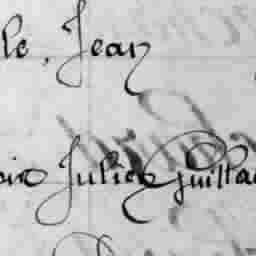 le, Jean
oir Julien Guilla